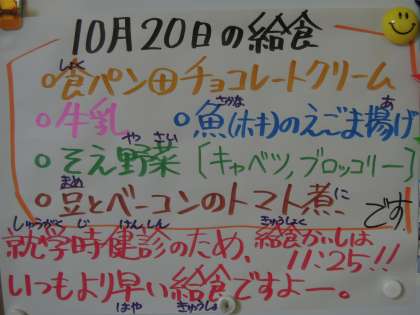 10月20日の給食
しょく
食パン⊕チョコレートクリーム
さかな あ
牛乳 魚(ホキ)のえごま揚げ
や さい
そえ野菜〔キャベツ,ブロッコリー〕
まめ に
豆とベーコンのトマト煮 です。
しゅうがく じ けんしん きゅうしょく
就学時健診のため、給食かいしは
11:25!!
いつもより早い給食ですよー。
はや きゅうしょ